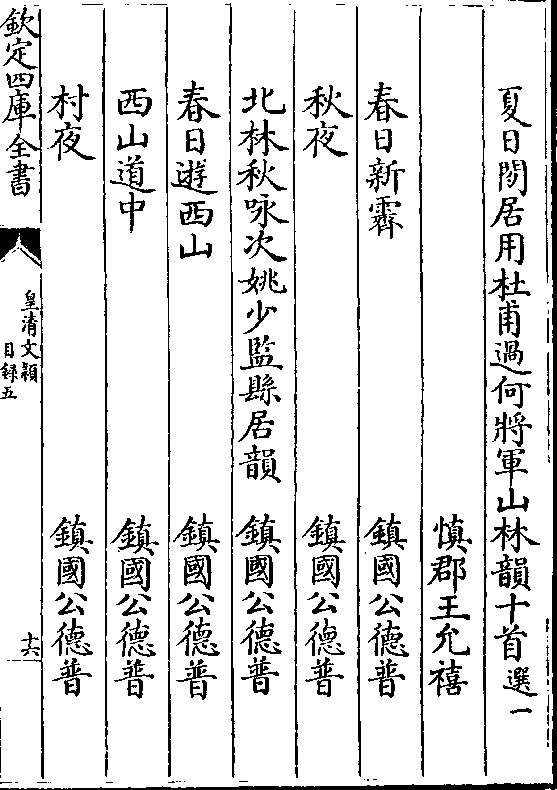 夏日閒居用杜甫過何將軍山林韻十首選一
慎郡王允禧
春日新霽　鎮國公德普
秋夜　鎮國公德普
北林秋咏次姚少監縣居韻　鎮國公德普
春日遊西山　鎮國公德普
西山道中　鎮國公德普
村夜　鎮國公德普
欽定四庫全書
皇清文穎
目録五
十六